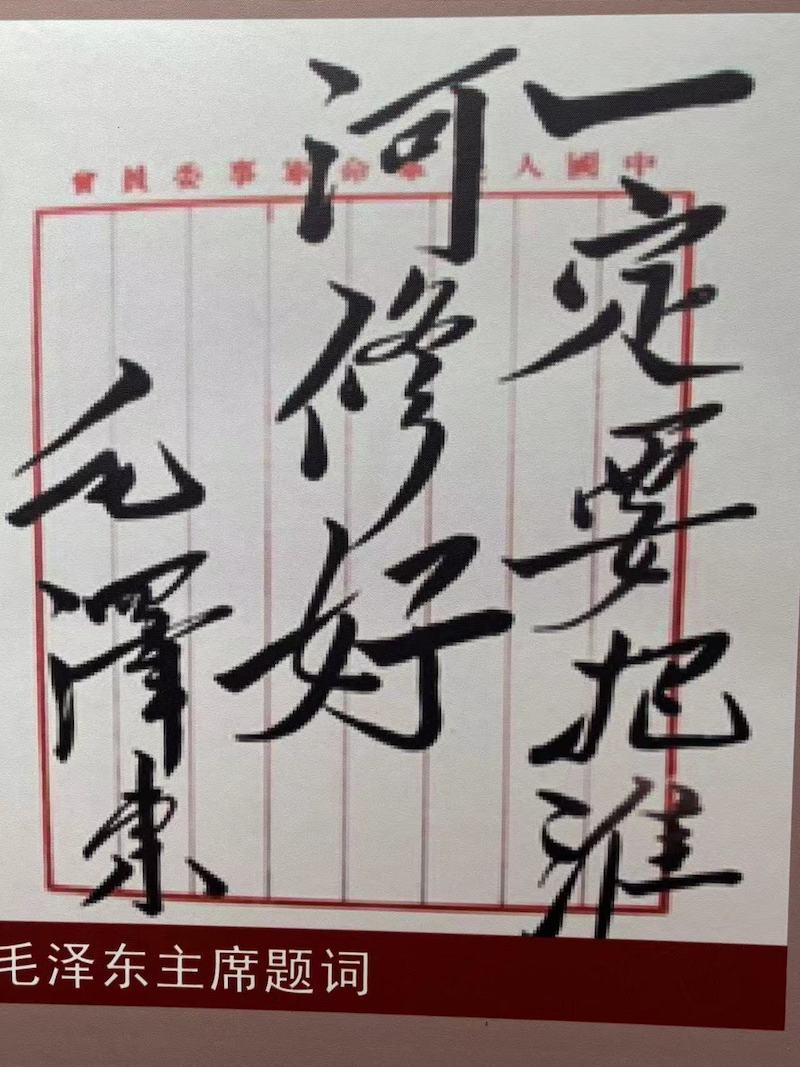 中國人民革命軍事委員會
一定要把淮
河修好
毛澤東
毛泽东主席题词